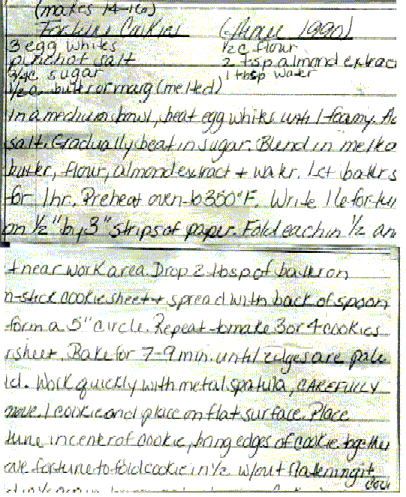 (makes 14-16)
Fortune Cookies (June 1990)
3 egg whites 1/2 c flour
pinch of salt 2 tsp almond extract
3/4 c sugar 1 tbsp water
1/2 c butter or marg (melted)
in a medium bowl, beat egg whites until foamy. Ad
salt. Gradually beat in sugar. Blend in melted
butter, flour, almond extract + water. Let batter s
for 1 hr. Preheat oven to 350°F. Write 16 fortun
on 1/2" by 3" strips of paper. Fold each in 1/2 an
t near work area. Drop 2 tbsp of batter on
n-stick cookie sheet + spread with back of spoon
form a 5" circle. Repeat to make 3 or 4 cookies
r sheet. Bake for 7-9 min. until edges are pale
ld. Work quickly with metal spatula, CAREFULLY
move 1 cookie and place on flat surface. Place
tune in center of cookie, bring edges of cookie together
over fortune to fold cookie in 1/2 w/out flattening it